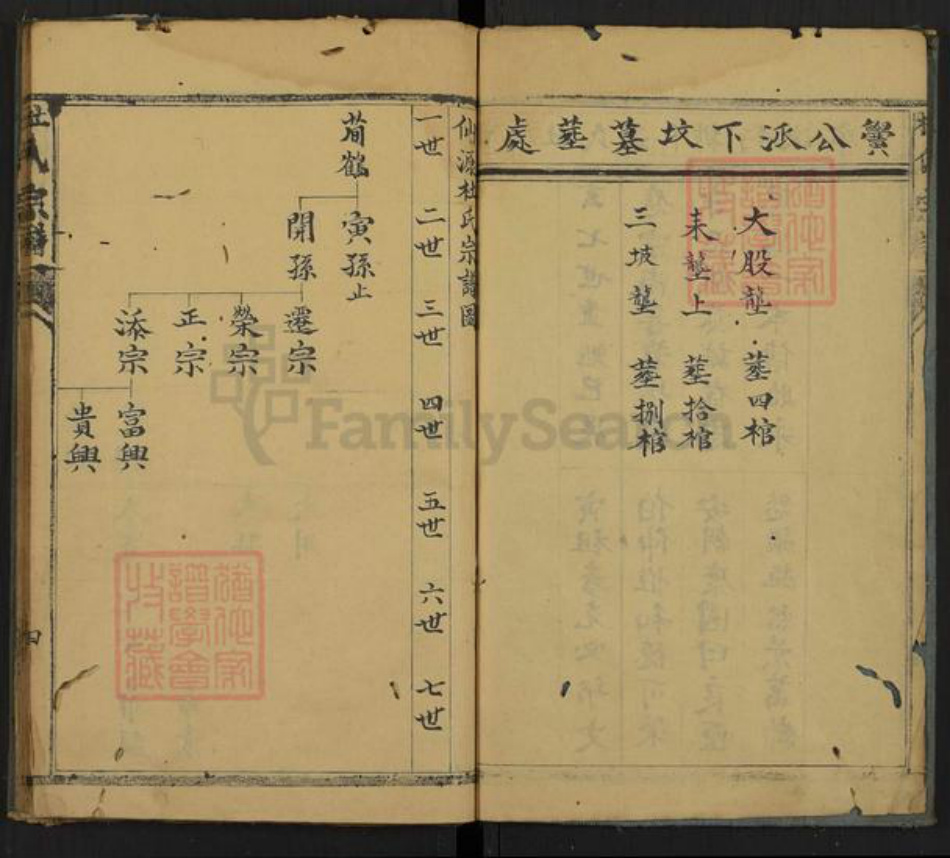 公派下坟墓塟處
大股壟 塟四棺
耒壟上 塟拾棺
三坡壟 塟捌棺
仙源杜氏宗譜圖
一世 二世 三世 四世 五世 六世 七世
荀鶴
寅孫止
開孫
遷宗
榮宗
正宗
添宗
富興
貴興
杜氏宗譜
四
FamilySearch